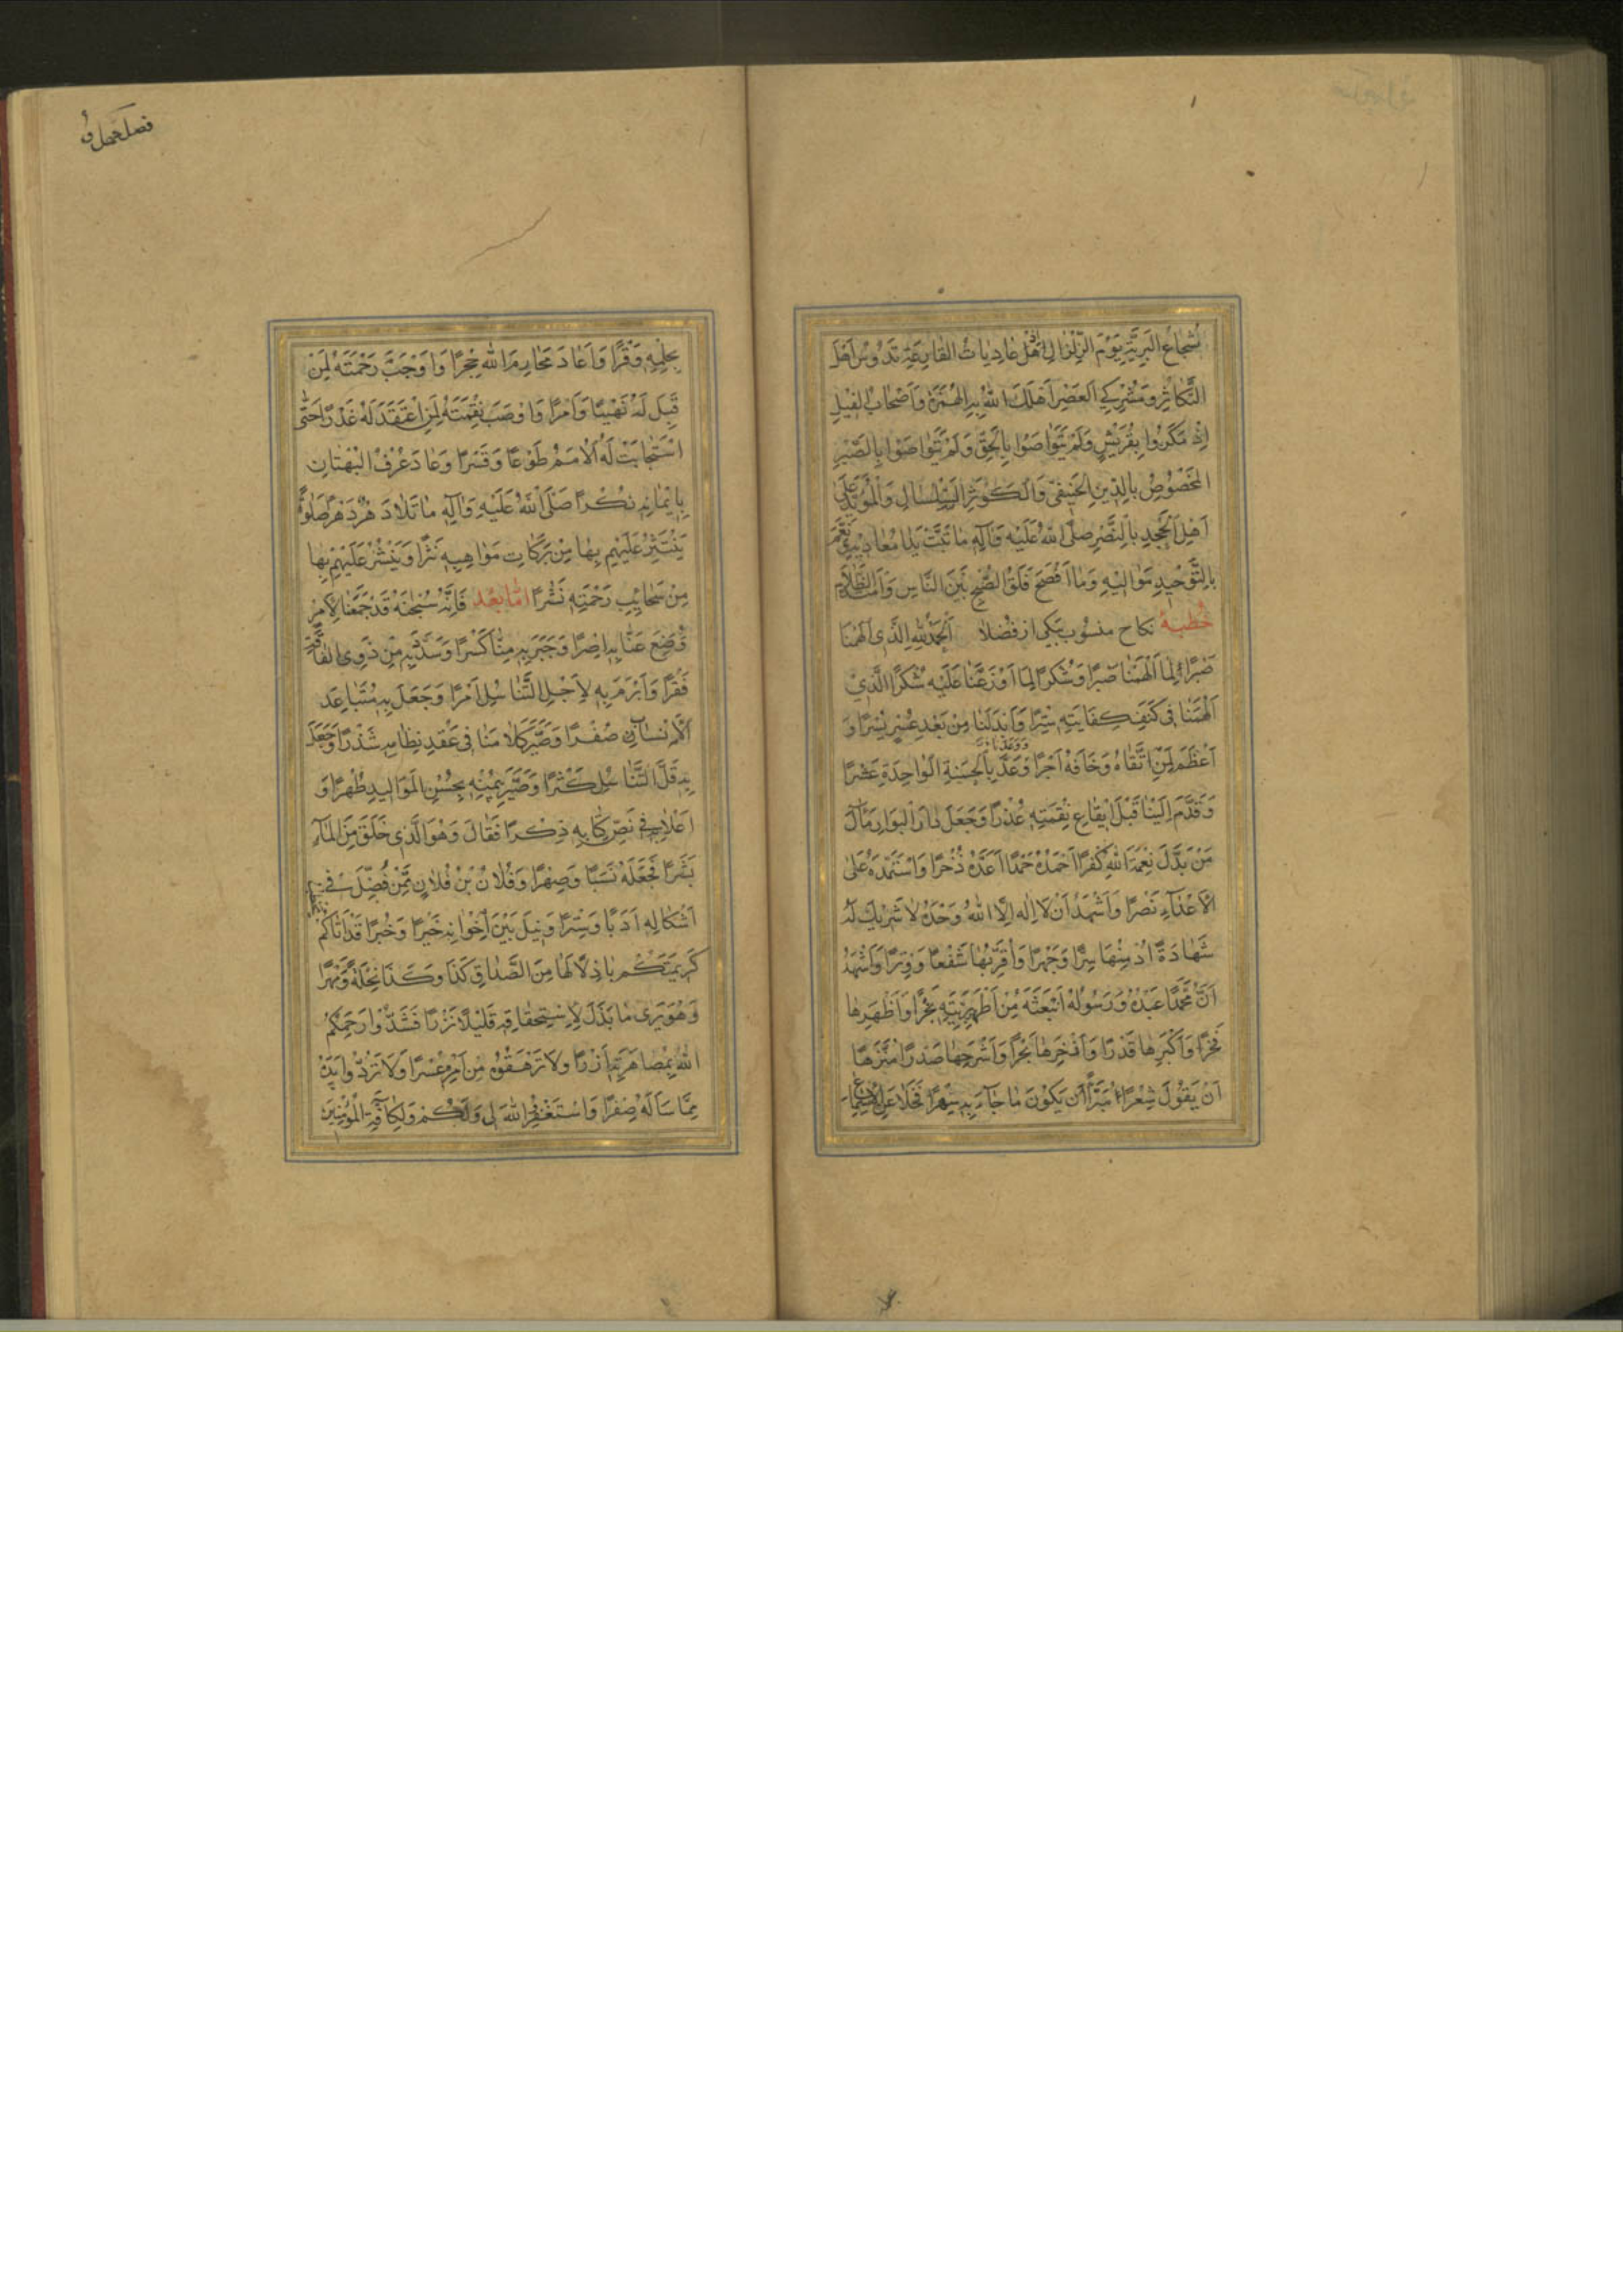 شُجاعُ البَرِيَّةِ يَوْمَ الزِّلْزالِ اِذْ هُلْ عادِياتُ القارِعَةِ تَدُوسُ اَهْلَ
التَّكاثُرِ وَمُشْرِكِي العَصْرِ اَهْلَكَ اللهُ بِهِ الهُمَزَةَ وَاَصْحابَ الفِيلِ
اِذْ مَكَرُوا بِقُرَيْشٍ وَلَمْ يَتَواصَوْا بِالْحَقِّ وَلَمْ يَتَواصَوْا بِالصَّبْرِ
المَخْصُوصُ بِالدِّينِ الحَنِيفِيِّ وَالكَوْثَرِ السَّلْسالِ وَالْمُؤَيَّدُ عَلىٰ
اَهْلِ الْجَحْدِ بِالنَّصْرِ صَلَّى اللهُ عَلَيْهِ وَآلِهِ مَا تَبَّتْ يَدا مُعادِيهِ وَنَعَّمَ
بِالتَّوْحِيدِ مَوالِيْهِ وَمَا اَفْصَحَ فَلَقُ الصُّبْحِ بَيْنَ النَّاسِ وَامْتَدَّ الظَّلامُ
خُطْبَهٔ نكاح منسُوب بيكى از فضلا اَلْحَمْدُ لِلّهِ الَّذِى اَلْهَمَنَا
صَبْرًا لِما اَلْهَمَنا صَبْرًا وَشُكْرًا لِمَا اَوْزَعَنا عَلَيْهِ شُكْرًا الَّذِيْ
اَلْهَمَنا فى كَنَفِ كِفَايَتِهِ سِتْرًا وَاَبْدَلَنا مِنْ بَعْدِ عُسْرٍ يُسْرًا وَ
اَعْظَمَ لِمَنِ اتَّقاهُ وَخَافَهُ اَجْرًا وَوَعَدَنا بِالْحَسَنَةِ الوَاحِدَةِ عَشْرًا
وَقَدَّمَ اِلَيْنا قَبْلَ اِيْقاعِ نِقْمَتِهِ عُذْرًا وَجَعَلَ دارَ الْبَوارِ مَآلَ
مَنْ بَدَّلَ نِعْمَةَ اللهِ كُفْرًا اَحْمَدُهُ حَمْدًا اَعَدَّهُ ذُخْرًا وَاسْتَمِدُّهُ عَلىٰ
الاَعْدَاءِ نَصْرًا وَاَشْهَدُ اَنْ لا اِلٰهَ اِلَّا اللهُ وَحْدَهُ لا شَرِيكَ لَهُ
شَهادَةً اُدْمِنُهَا سِرًّا وَجَهْرًا وَاُقِرُّ بِهَا شَفْعًا وَوِتْرًا وَاَشْهَدُ
اَنَّ مُحَمَّدًا عَبْدُهُ وَرَسُولُهُ اَنْبَعَثَهُ مِنْ اَطْهَرِ بَرِيَّتِهِ نَجْرًا وَاَظْهَرِها
فَخْرًا وَاَكْبَرِها قَدْرًا وَاَزْخَرِها بَحْرًا وَاَشْرَحِها صَدْرًا مُنَزَّهًا
اَنْ يَقُوْلَ شِعْرًا مُبَرَّأً اَنْ يَكُوْنَ مَا جَاءَ بِهِ سِحْرًا فَجَلا عَنِ الاَسْماعِ
بِحِلْمِهِ وَقْرًا وَاَعادَ مَحَارِمَ اللهِ حِجْرًا وَاَوْجَبَ رَحْمَتَهُ لِمَنْ
قَبِلَ لَهُ نَهْيًا وَاَمْرًا وَاَوْصَبَ نِقْمَتَهُ لِمَنِ اعْتَقَدَ لَهُ غَدْرًا حَتّٰى
اسْتَجابَتْ لَهُ الاُمَمُ طَوْعًا وَقَسْرًا وَعادَ عُرْفُ البُهْتانِ
بِاِيْمانِهِ نُكْرًا صَلَّى اللهُ عَلَيْهِ وَآلِهِ ما تَلا دَهْرٌ دَهْرًا صَلوٰةً
يَنْتَثِرُ عَلَيْهِمْ بِها مِنْ بَرَكاتِ مَواهِبِهِ نَثْرًا وَيَنْشُرُ عَلَيْهِمْ بِها
مِنْ سَحائِبِ رَحْمَتِهِ نَشْرًا امّا بعْد فَاِنَّهُ سُبْحٰنَهُ قَدْ جَمَعَنا لاَمْرٍ
وَضَعَ عَنَّا بِهِ اِصْرًا وَجَبَرَ بِهِ مِنَّا كَسْرًا وَسَدَّ بِهِ مِنْ ذَوِى الفَاقَةِ
فَقْرًا وَاَبْرَمَ بِهِ لِاَجْلِ التَّناسُلِ اَمْرًا وَجَعَلَ بِهِ مُتَباعِدَ
الْاَنْسابِ صُفْرًا وَصَيَّرَ كَلامَنا فى عَقْدِ نِظامِهِ شَذْرًا وَجَعَلَ
بِهِ قَلَّ التَّناسُلِ كَثْرًا وَصَيَّرَ بِيُمْنِهِ بِحُسْنِ المَوَالِيدِ طُهْرًا وَ
اَعْلا بِهِ فِي نَصِّ كِتابِهِ ذِكْرًا فَقالَ وَهُوَ الَّذِى خَلَقَ مِنَ الْمَآءِ
بَشَرًا فَجَعَلَهُ نَسَبًا وَصِهْرًا وَفُلانُ بْنُ فُلانٍ مِمَّنْ فُضِّلَ فِي
اَشْكالِهِ اَدَبًا وَسِتْرًا وَنِيلَ بَيْنَ اِخْوانِهِ خَيْرًا وَخُبْرًا قَدْ اَتاكُمْ
كَرِيمَتَكُمْ باذِلًا لَها مِنَ الصَّداقِ كَذَا وَكَذَا نِحْلَةً وَمَهْرًا
وَهُوَ يَرىٰ مَا بَذَلَ لِاِسْتِحْقاقِهِ قَلِيْلًا نَزْرًا فَشُدُّوا رَحِمَكُمُ
اللهُ بِمُصاهَرَتِهِ اَزْرًا وَلا تُرْهِقُوهُ مِنْ اَمْرِهِ عُسْرًا وَلا تَرُدُّوا يَدَهُ
مِمَّا سَاَلَهُ صِفْرًا وَاسْتَغْفِرُ اللهَ لى وَلَكُمْ وَلِكافَّةِ الْمُؤْمِنِيْنَ